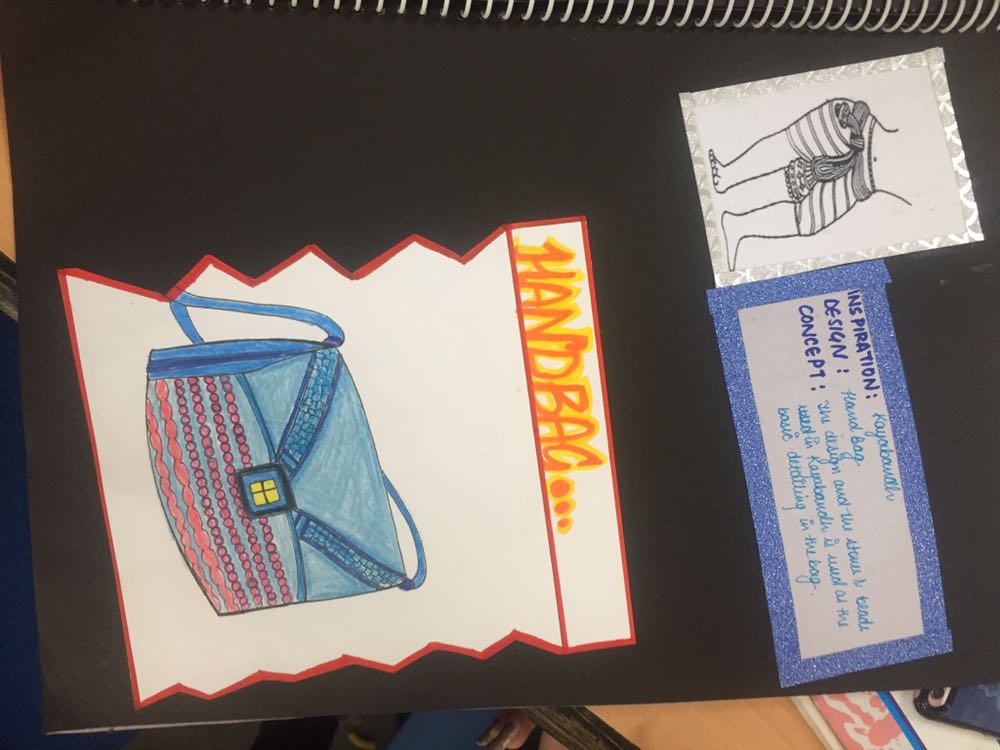 INSPIRATION: Kayabandh
DESIGN : Hand bag
CONCEPT : The design and the stones & beads
used in Kayabandh is used as the
basic detailing in the bag.
HANDBAG...